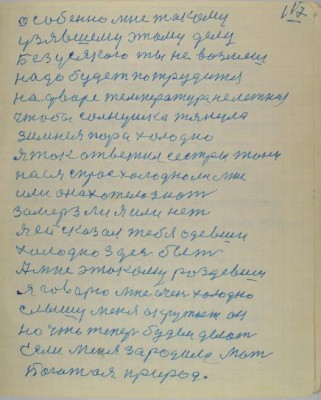 117
особенно мне такому
узявшему этому делу
без усякого ты не возмеш
надо будет потрудится
на дваре температура не леткая
чтобы солнушка тянула
зимняя пора холодно
я так ответил сестры тони
на ея спрос холодно ли мне
или она хотела знат
замерз ли я или нет
я ей сказал тебя одевши
холодно здес быт
А мне этакому роздевши
я говарю мне очен холодно
слышу меня окружает он
но что тепер будем делат
Если меня зародила мат
богатая природ.